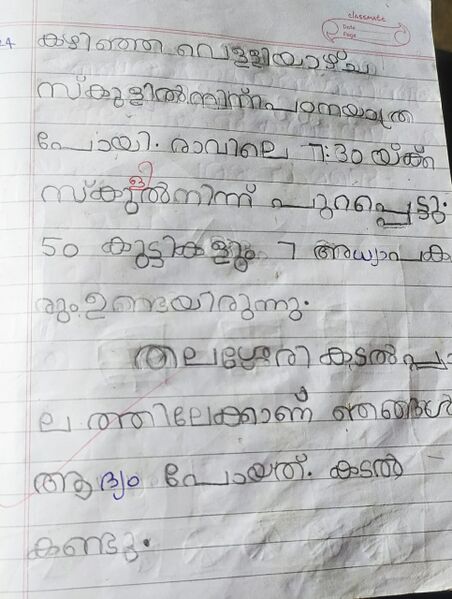 classmate
Date
Page
24
കഴിഞ്ഞ വെള്ളിയാഴ്ച
സ്കൂളിൽനിന്ന് പഠനയാത്ര
പോയി. രാവിലെ 7:30 യ്ക്ക്
സ്കൂളിൽനിന്ന് പുറപ്പെട്ടു.
50 കുട്ടികളും 7 അധ്യാപക
രും ഉണ്ടെയിരുന്നു.
തലശ്ശേരി കടൽ പാ
ലത്തിലേക്കാണ് ഞങ്ങൾ
ആദ്യം പോയത്. കടൽ
കണ്ടു.